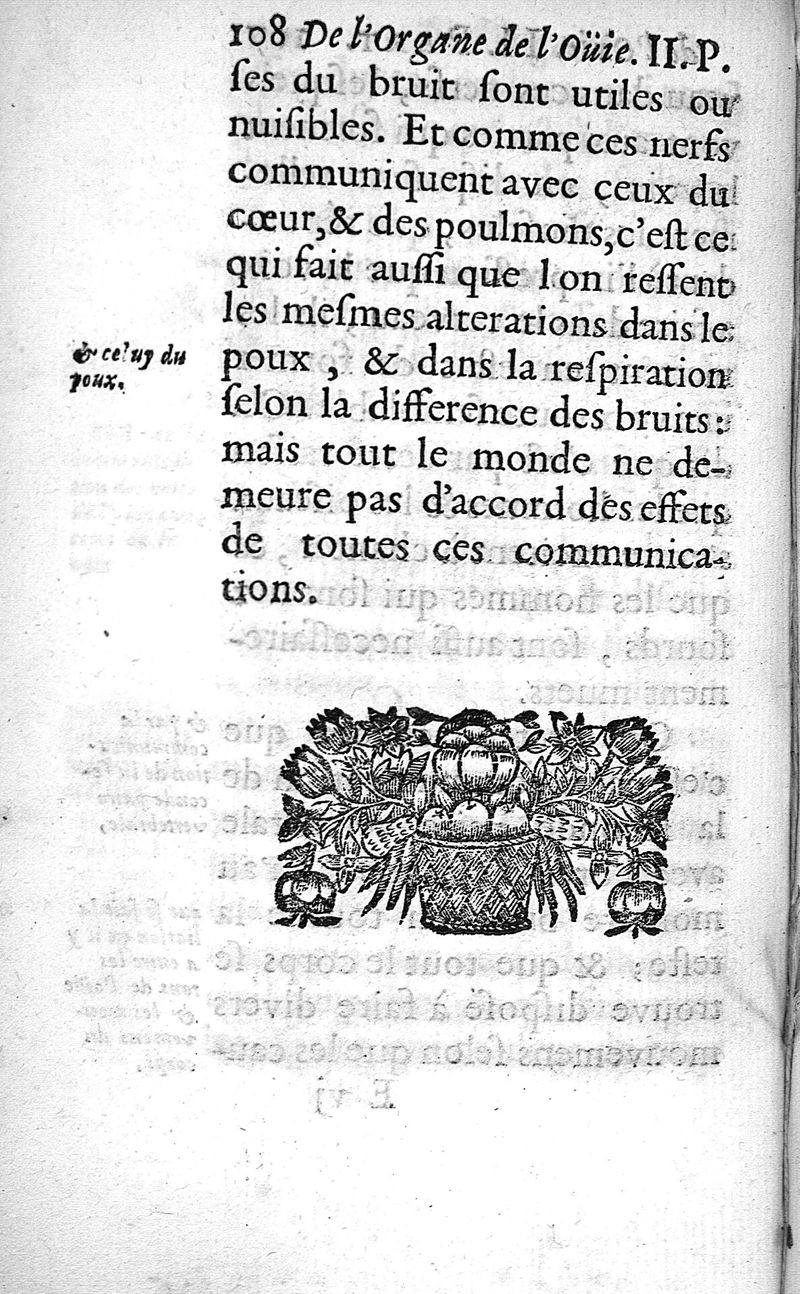 108 De l'Organe de l'Oüie. II. P.
ſes du bruit ſont utiles ou
nuiſibles. Et comme ces nerfs
communiquent avec ceux du
cœur, & des poulmons, c'eſt ce
qui fait auſſi que l on reſſent
les meſmes alterations dans le
& celuy du
poux.
poux, & dans la reſpiration
ſelon la difference des bruits:
mais tout le monde ne de-
meure pas d'accord des effets
de toutes ces communica-
tions.